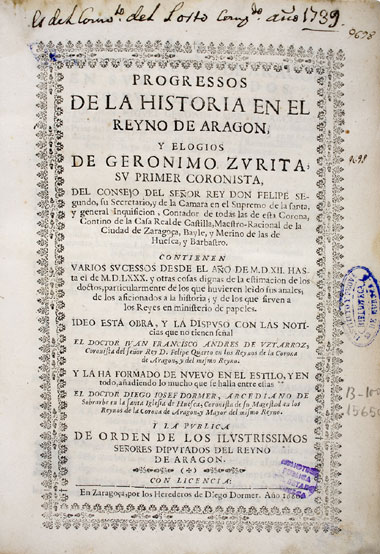 año 1739.
9698
PROGRESSOS
DE LA HISTORIA EN EL
REYNO DE ARAGON,
Y ELOGIOS
DE GERONIMO ZVRITA,
SV PRIMER CORONISTA,
DEL CONSEJO DEL SEÑOR REY DON FELIPE SE-
gundo, su Secretario, y de la Camara en el Supremo de la santa,
y general Inquisicion, Contador de todas las de esta Corona,
Contino de la Casa Real de Castilla, Maestro-Racional de la
Ciudad de Zaragoça, Bayle, y Merino de las de
Huesca, y Barbastro.
CONTIENEN
VARIOS SVCESSOS DESDE EL AÑO DE M.D.XII. HAS-
ta el de M.D.LXXX. y otras cosas dignas de la estimacion de los
doctos, particularmente de los que huvieren leido sus anales;
de los aficionados a la historia; y de los que sirven a
los Reyes en ministerio de papeles.
IDEO ESTA OBRA, Y LA DISPUSO CON LAS NOTI-
cias que no tienen señal
EL DOCTOR IVAN FRANCISCO ANDRES DE VZTARROZ,
Coronista del señor Rey D. Felipe Quarto en los Reynos de la Corona
de Aragon, y del mismo Reyno.
Y LA HA FORMADO DE NVEVO EN EL ESTILO, Y EN
todo, añadiendo lo mucho que se halla entre ellas
EL DOCTOR DIEGO JOSEF DORMER, ARCEDIANO DE
Sobrarbe en la santa Iglesia de Huesca, Coronista de su Magestad en los
Reynos de la Corona de Aragon, y Mayor del mismo Reyno.
Y LA PVBLICA
DE ORDEN DE LOS ILVSTRISSIMOS
SEÑORES DIPVTADOS DEL REYNO
DE ARAGON.
CON LICENCIA:
En Zaragoça, por los Herederos de Diego Dormer. Año